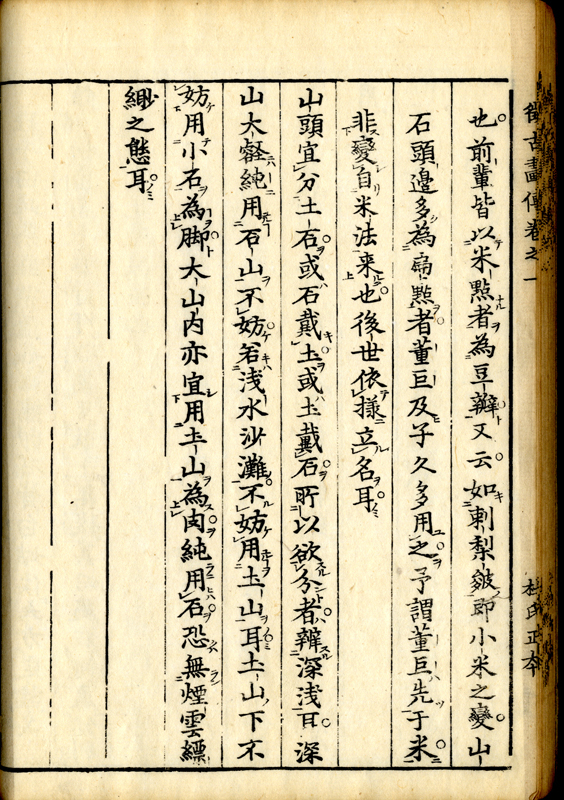 也前輩皆以米點者為豆瓣又云如刺梨皴即小米之變山
石頭邊多為扁點者董巨及子久多用之予謂董巨先于米
非變自米法来也後世依様立名耳
山頭宜分土石或石戴土或土戴石所以欲分者辨深浅耳深
山大壑純用石山不妨若浅水沙灘不妨用土山耳土山下不
妨用小石為脚大山内亦宜用土山為肉純用石恐無煙雲縹
緲之態耳
畫傳卷之一